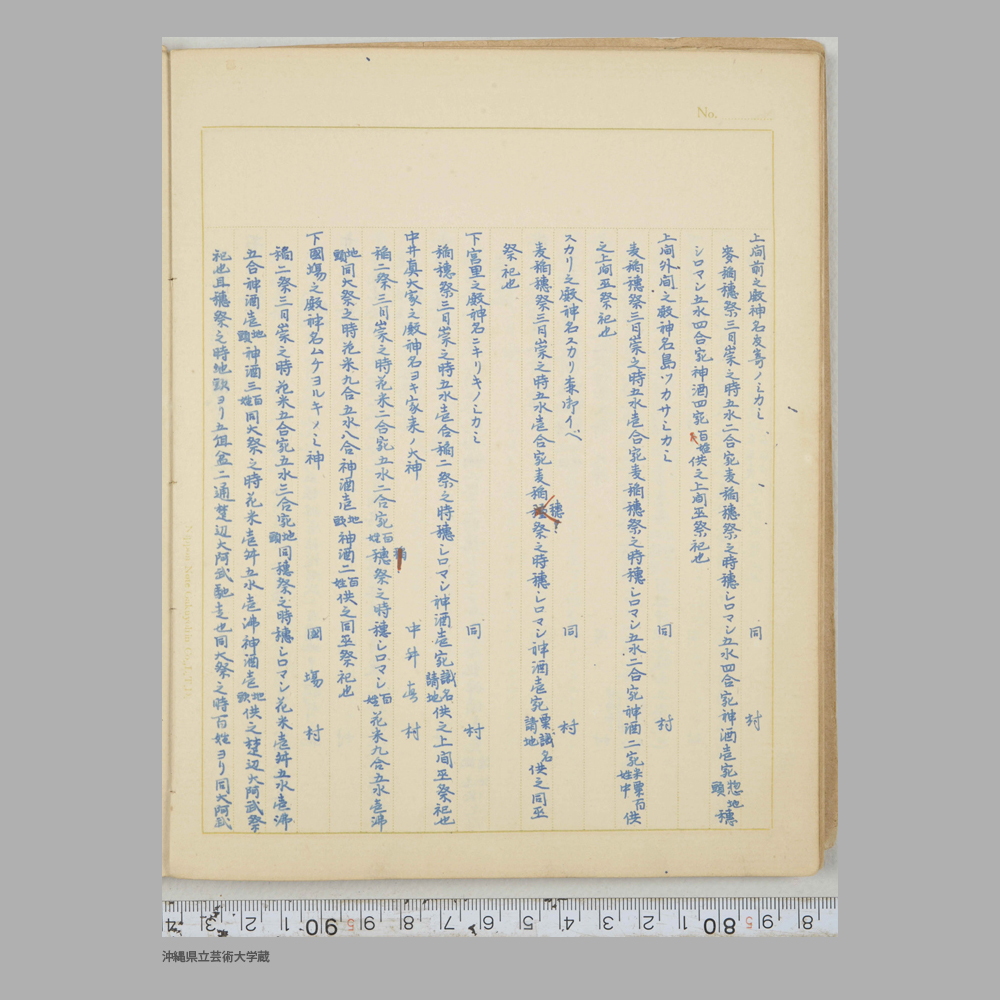 No.
上間前之殿神名友寄ノミカミ 同村
麥稲穂祭三日崇之時五水二合宛麦稲穂祭之時穂シロマシ五水四合宛神酒壱宛惣地頭穂
シロマシ五水四合宛神酒四宛百姓供之上間巫祭祀也
上間外間之殿神名島ツカサミカミ 同村
麦稲穂祭三日崇之時五水壱合宛麦稲穂祭之時穂シロマシ五水二合宛神酒二宛米粟百姓中供
之上間巫祭祀也
スカリ之殿神名スカリ森御イベ 同村
麦稲穂祭三日崇之時五水壱合宛麦稲穂祭之時穂シロマシ神酒壱宛粟識名請地供之同巫
祭祀也
下宮里之殿神名ニキリキノミカミ 同村
稲穂祭三日崇之時五水壱合稲二祭之時穂シロマシ神酒壱宛識名請地供之上間巫祭祀也
中井真大家之殿神名ヨキ家来ノ大神 中井真村
稲二祭三日崇之時花米二合宛五水二合宛百姓稲穂祭之時穂シロマシ百姓花米九合五水壱沸
地頭同大祭之時花米九合五水八合神酒壱地頭神酒二百姓供之同巫祭祀也
下國場之殿神名ムケヨルキノミ神 國場村
稲二祭三日崇之時花米五合宛五水三合宛地頭同穂祭之時穂シロマシ花米壱舛五水壱沸
五合神酒壱地頭神酒三百姓同大祭之時花米壱舛五水壱沸神酒壱地頭供之楚辺大阿武祭
祀也且穂祭之時地頭ヨリ五俎盆二通楚辺大阿武馳走也同大祭之時百姓ヨリ同大阿武
沖縄県立芸術大学蔵